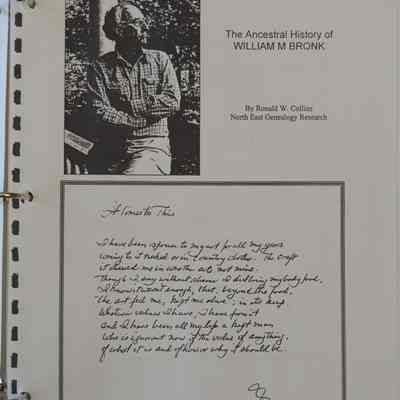 The Ancestral History of
WILLIAM M BRONK
By Ronald W. Collins
North East Genealogy Research
I have been to my art for all my years
coming to it naked or in country clothes. The craft
it showed me in another art, not mine.
Though I, say without shame I did bring my body food,
I knew it wasn't enough, that, beyond the food,
the art fed me, kept me alive; in its keep.
Whatever values I have, I have from it
and I have been all my life a kept man
who is ignorant now of the value of anything,
of what it is and of how or why I should be.